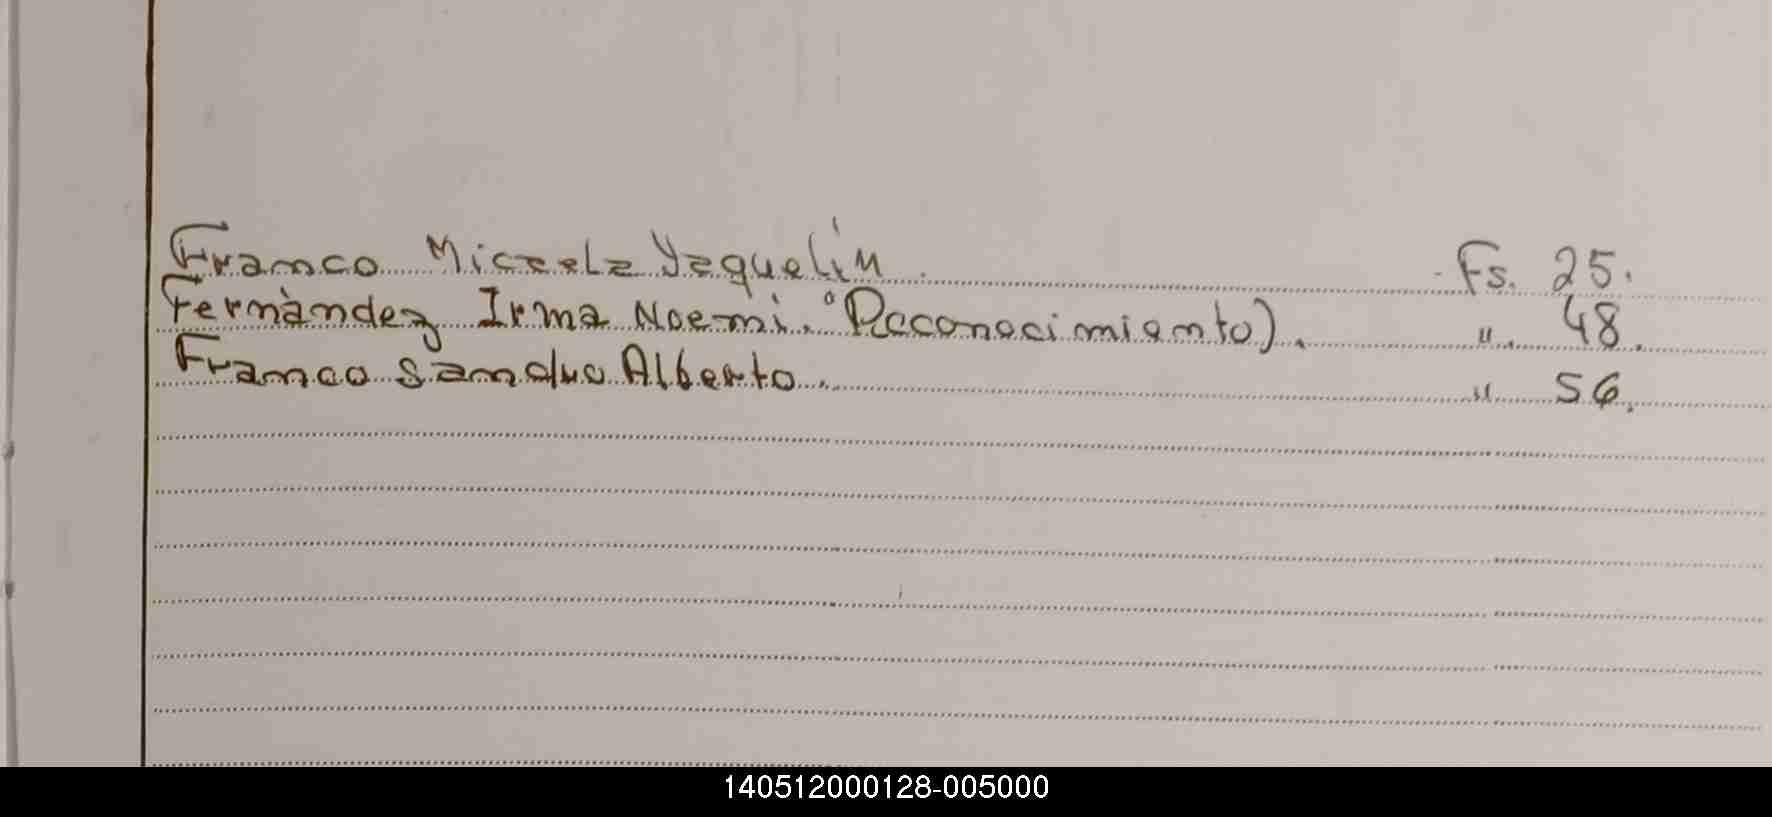 Franco Micaela Yaquelín. Fs. 25.
Fernàndez Irma Noemi. "Reconocimiento). ". 48.
Franco Sandro Alberto. " 56.
140512000128-005000